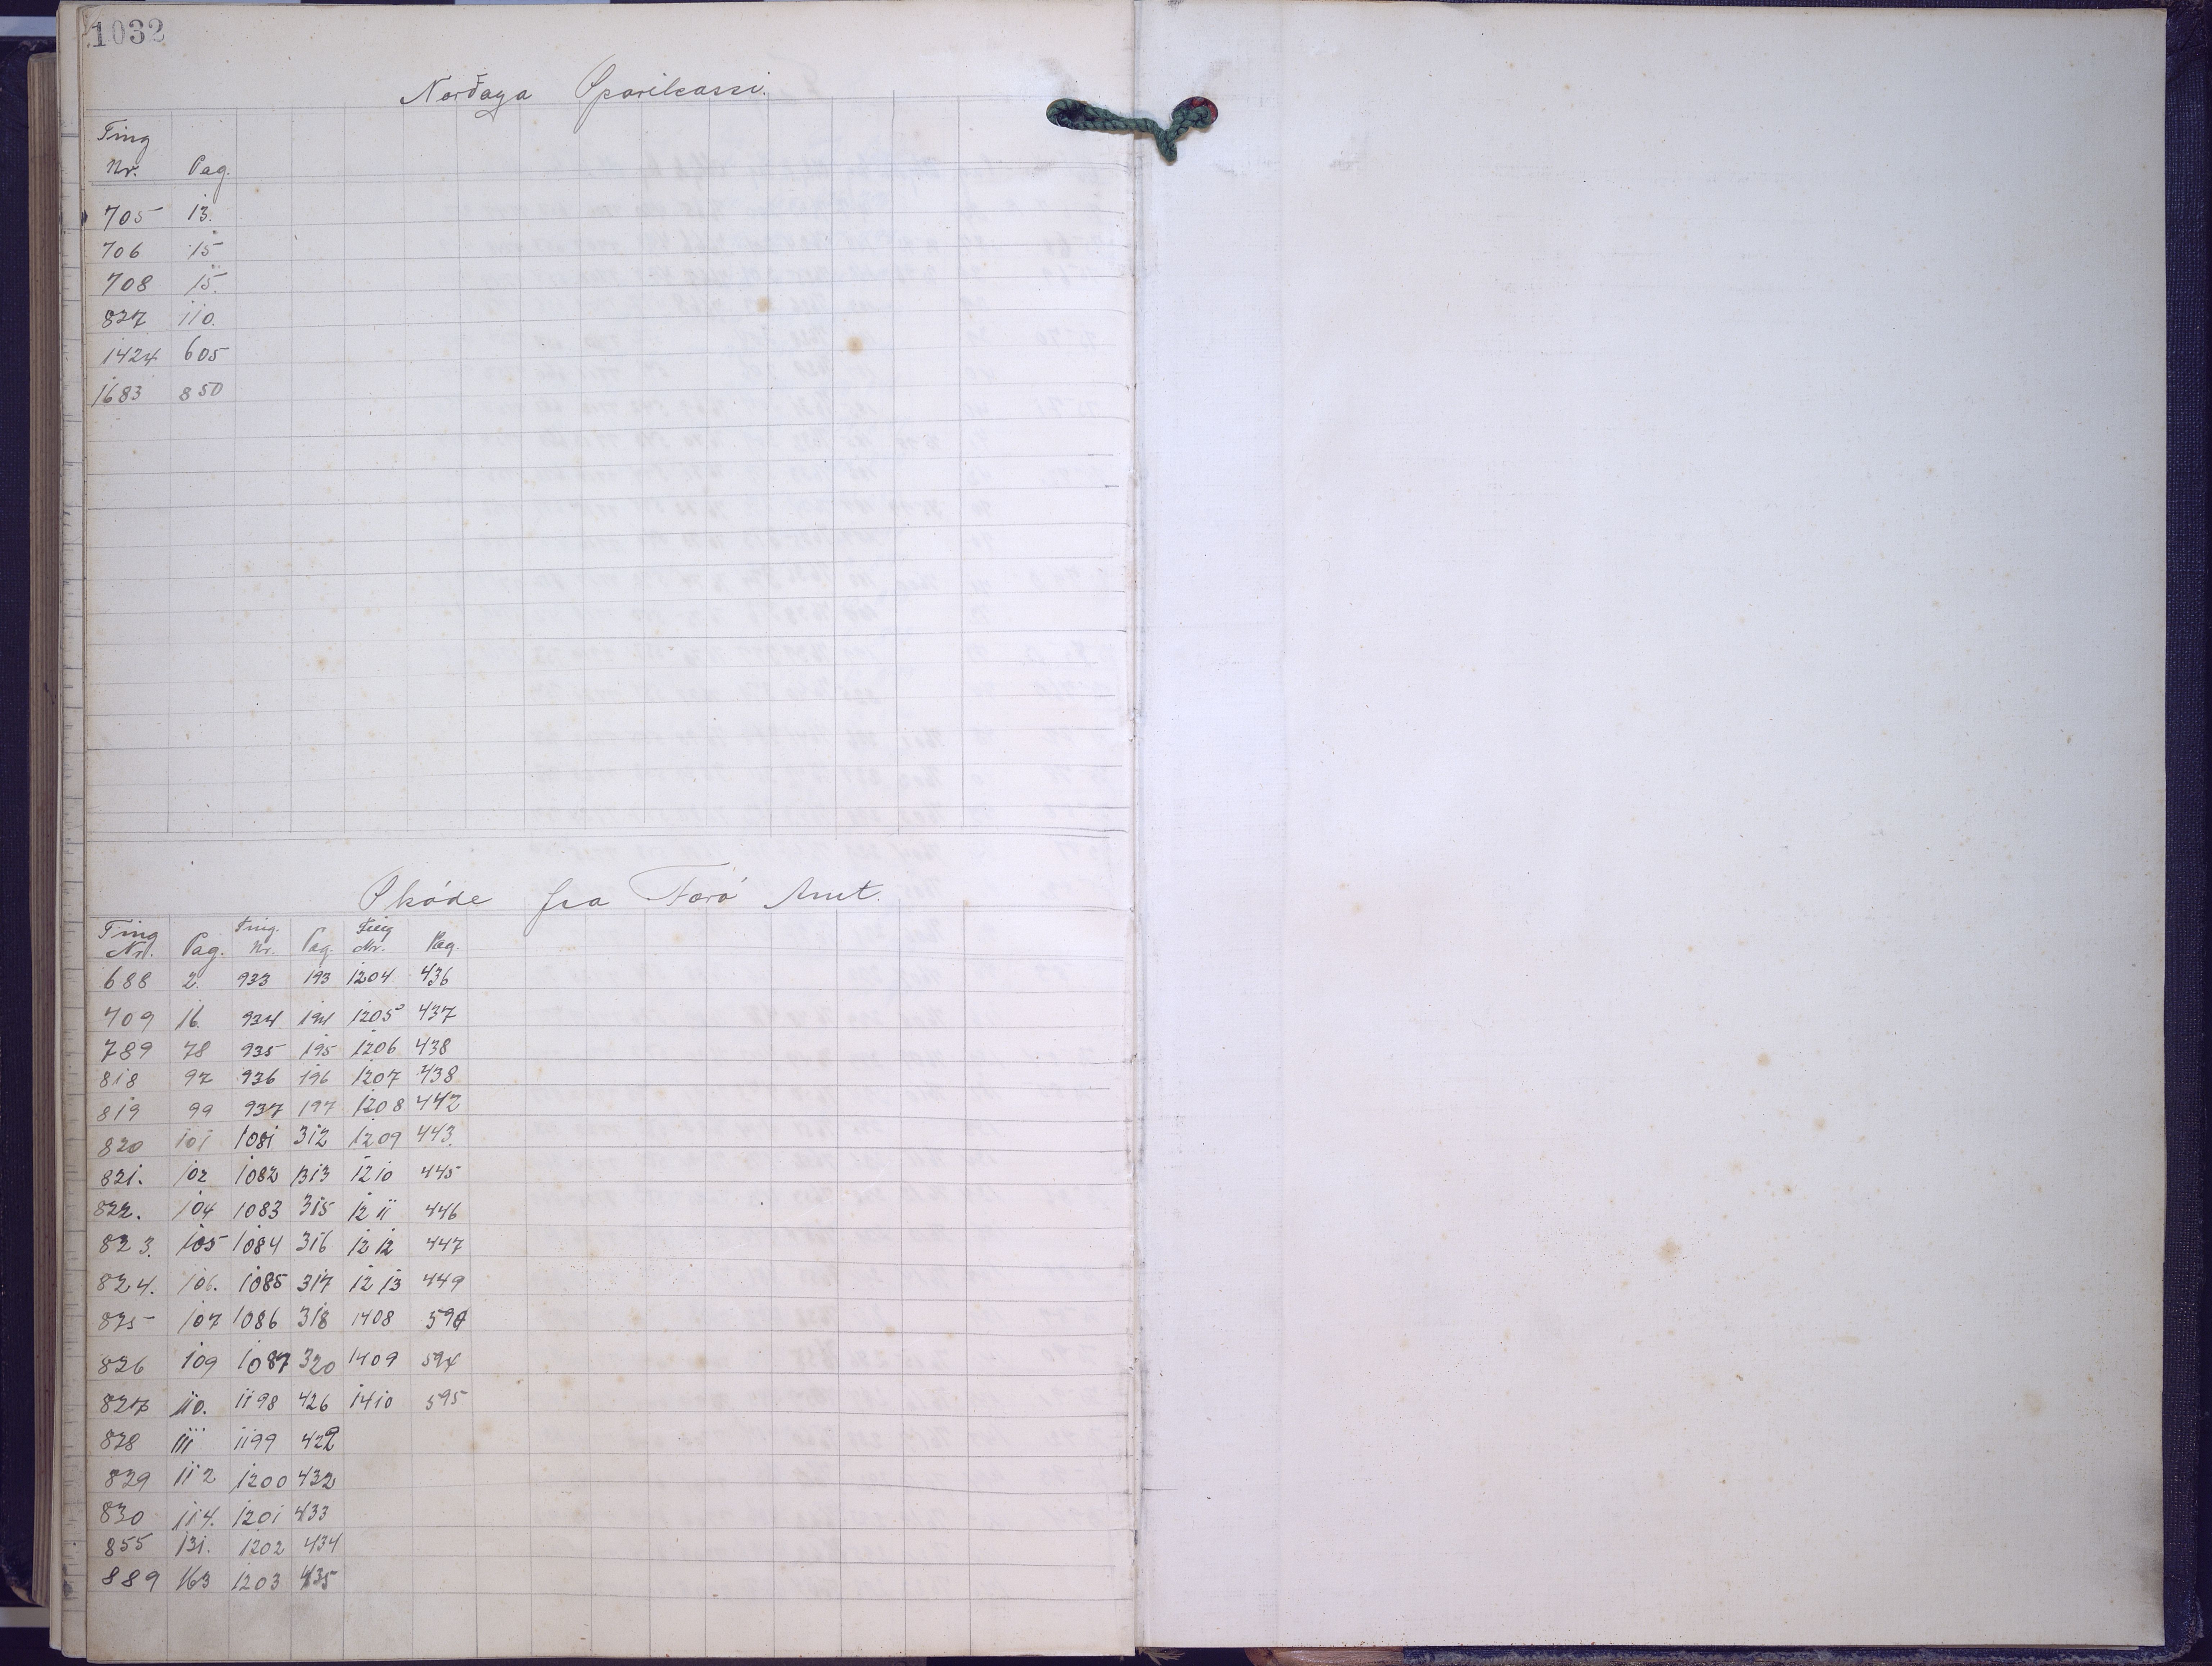 1032
Norðoya Sparikassi.
Ting
Nr. Pag.
705 13.
706 15
708 15.
827 110.
1424 605
1683 850
Skóde fra Færö Amt.
Ting Ting. Ting
Nr. Pag. Nr. Pag. Nr. Pag.
688 2. 933 193 1204 436
709 16. 934 194 1205 437
789 78 935 195 1206 438
818 97 936 196 1207 438
819 99 937 197 1208 442
820 101 1081 312 1209 443.
821. 102 1082 313 1210 445
822. 104 1083 315 1211 446
823. 105 1084 316 1212 447
824. 106. 1085 317 1213 449
825 107 1086 318 1408
826 109 1087 320 1409 594
827 110. 1198 426 1410 595
828 111 1199
829 112 1200 432
830 114. 1201 433
855 131. 1202 434
889 163 1203 435